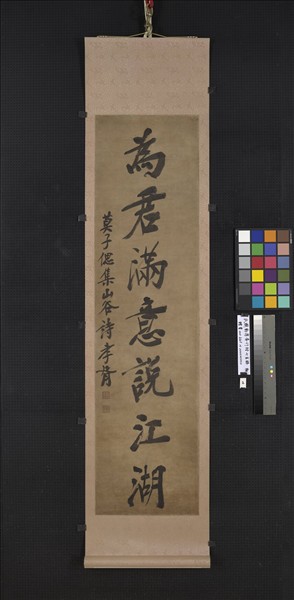 為君滿意說江湖
莫子偲集山谷詩孝胥